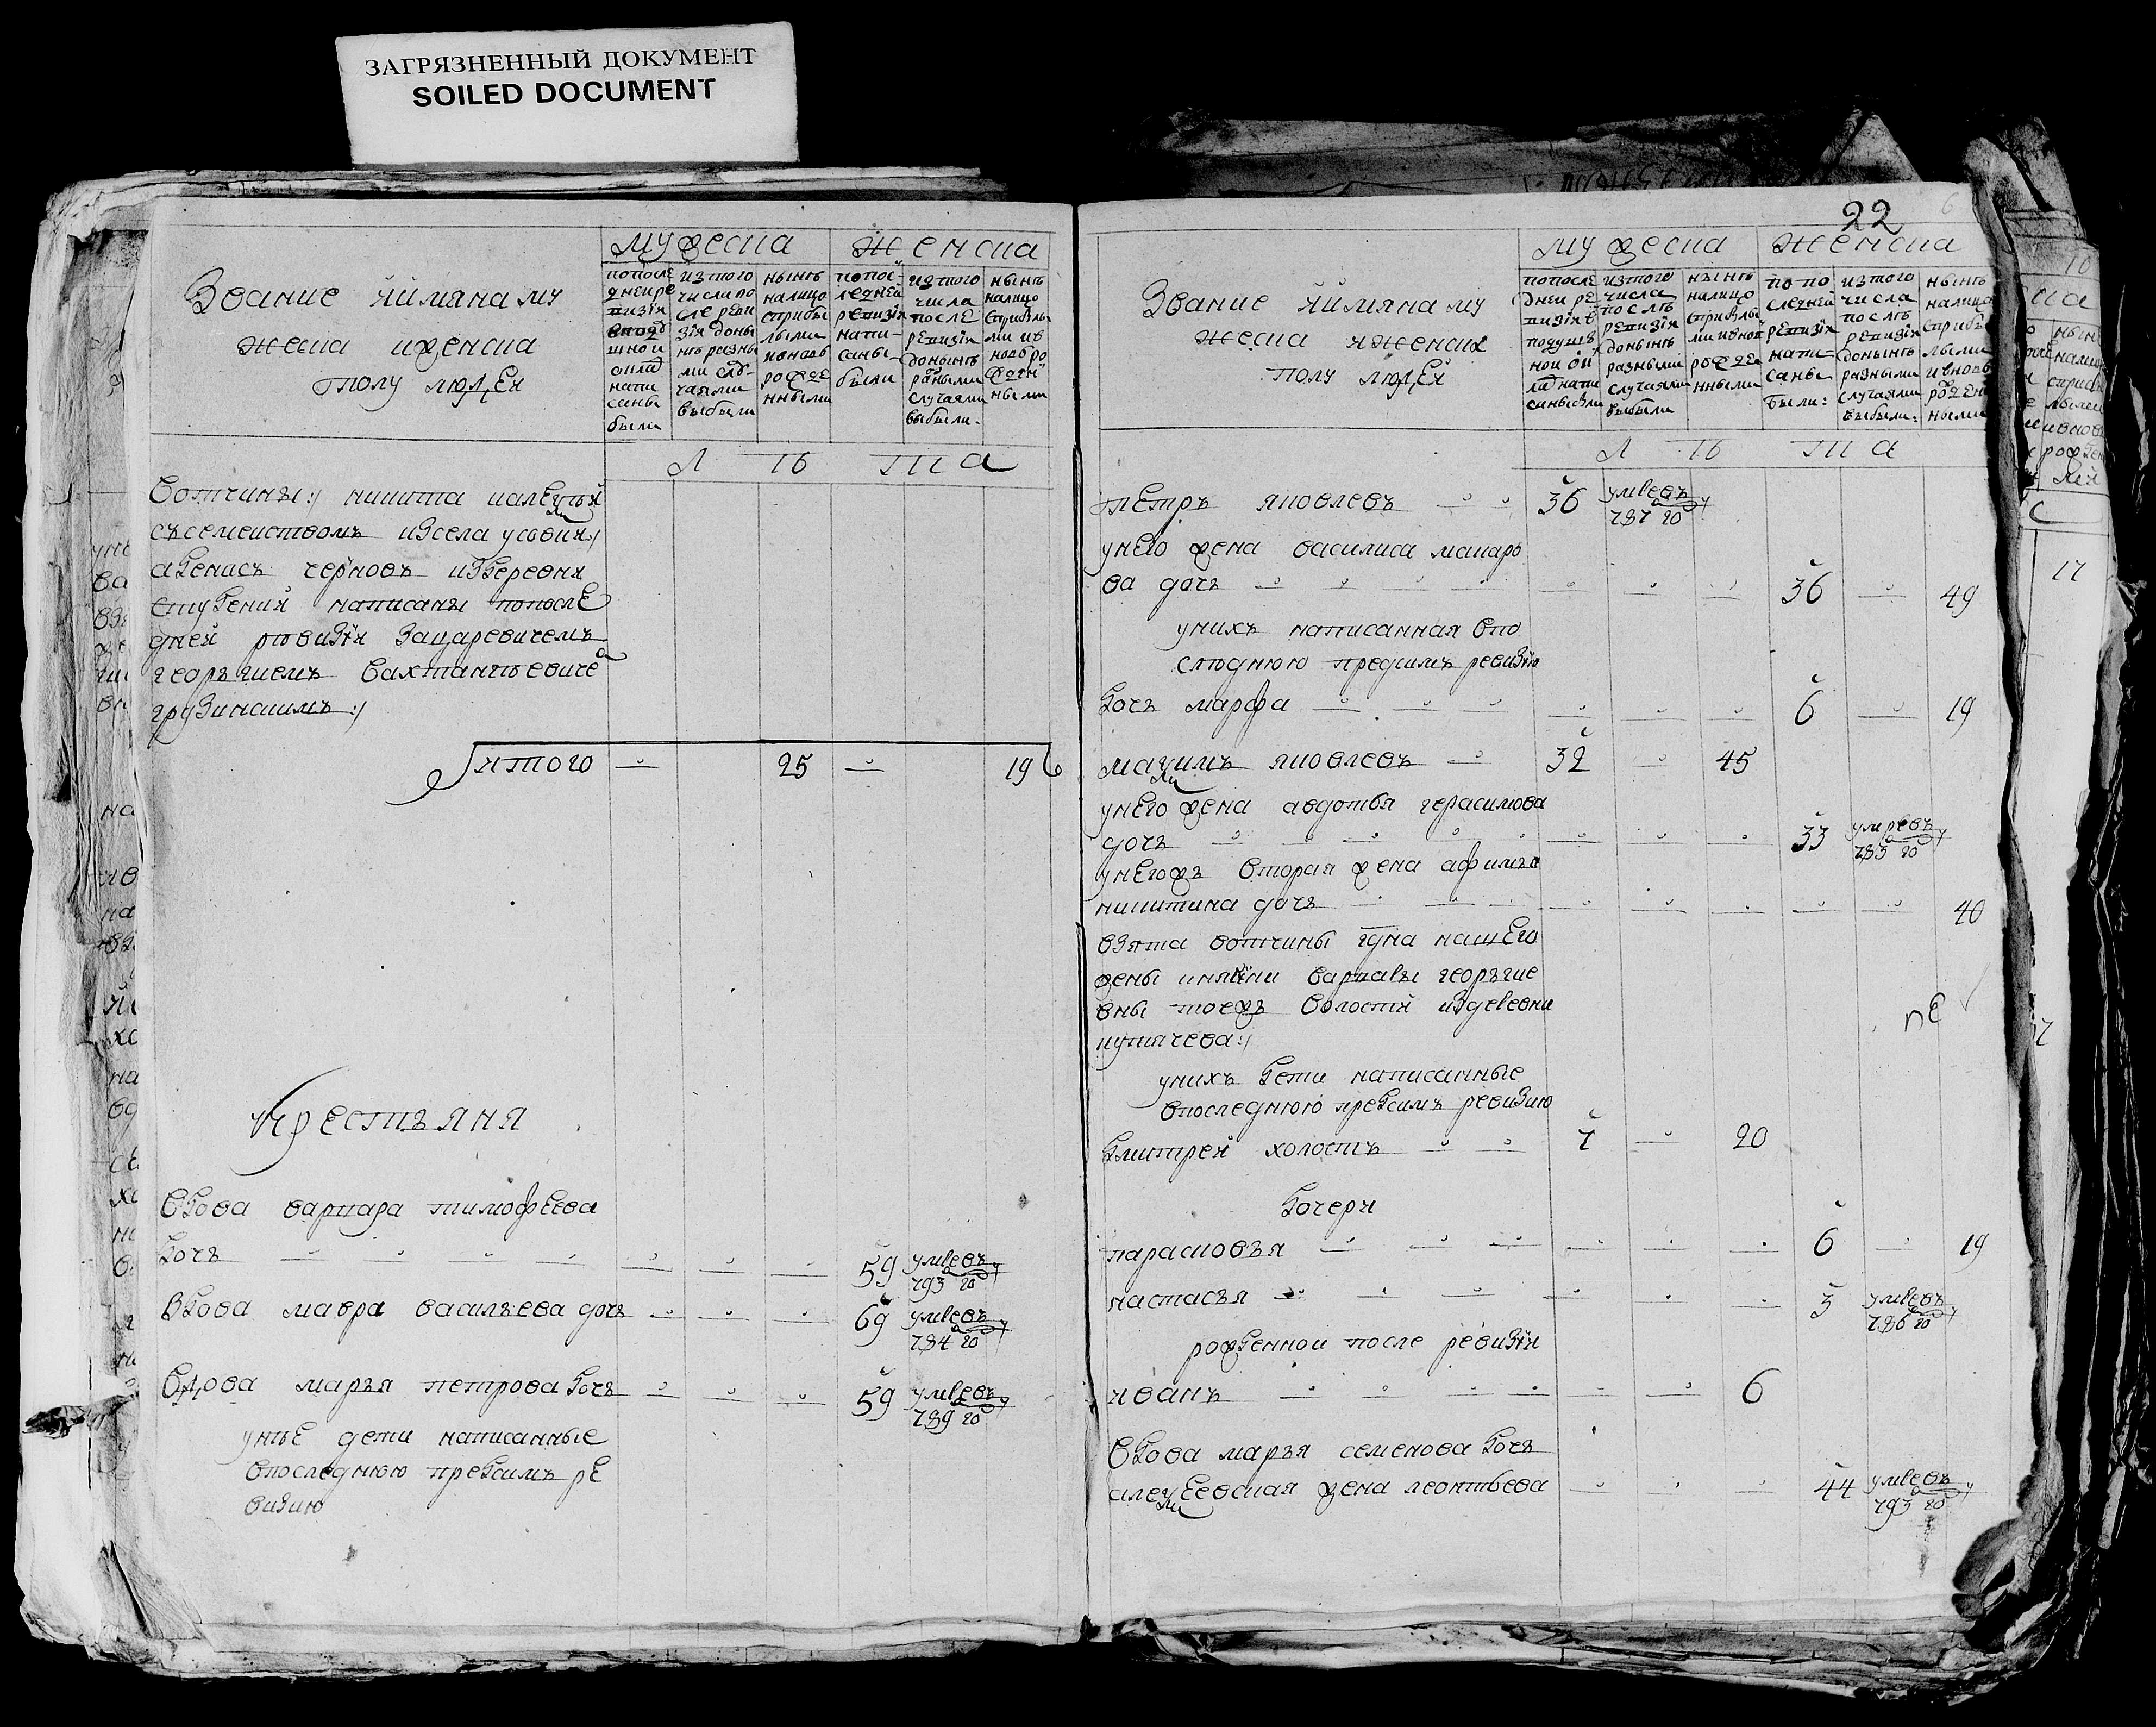 ЗАГРЯЗНЕННЫЙ ДОКУМЕНТ
SOILED DOCUMENT
Звание и имяна му
жеска и женска
полу людей
мужеска
женска
попосле
дней ре
визiи
вподу
шной
оклад
напи
саны
были
изтого
числа по
сле реви
зiи доны
нѣ разны
ми слу-
чаями
выбыли
нынѣ
налицо
сприбы
лыми
ивновь
рожде
нными
попос-
ледней
ревизiи
напи-
саны-
были
изтого
числа
после
ревизiи
донынѣ
разными
случаями
выбыли.
нынѣ
налицо
сприбы
ми ив
новь ро
жден
ными
лѣта
вотчины:/ никита калекий
съсемействомъ изсела усовки:/
аденисъ черновъ издеревни
студенки написаны попосле
дней ревизiи зацаревичемъ
георъгиемъ вахтангъевиче
грузинскимъ:/
итого 25 19
крестьяня
вдова варвара тимофеева
дочь 59 умревъ
793 го
вдова мавра васильева дочь 69 умревъ
784 го
вдова марья петрова дочь 59 умревъ
789 го
унѣе дети написанные
впоследнюю предсимъ ре
визию
22
Звание и имяна му
жеска и женска
полу людей
мужеска
женска
попосле
дней ре
визiи в
подуш
ной ок
лад напи
саны были
изтого
числа
послѣ
ревизiи
донынѣ
разными
случаями
выбыли
нынѣ
налицо
сприбы
ми ивной
рожде
нными
по по
следней
ревизiи
напи-
саны
были:
изтого
числа
послѣ
ревизiи
донынѣ
разными
случаями
выбыли:
нынѣ
налицо
сприбы
лыми
ивновь
рожден
ными
лѣта
петръ яковлевъ 36 умревъ
787 го
унего жена василиса макаро
ва дочь 36 49
унихъ написанная впо
слѣднюю предсимъ ревизiю
дочь марфа 6 19
максимъ яковлевъ 32 45
унего жена авдотья герасимова
дочь 33 умревъ
783 го
унегожъ вторая жена афимья
никитина дочь 40
взята вотчины гдна нашего
жены княгини варвары георъгие
вны тоежъ волости издеревни
путячева:/
унихъ дети написанные
впоследнюю предсимъ ревизию
дмитрей холостъ 7 20
дочери
парасковья 6 19
настасья 3 умревъ
786 го
рожденной после ревизiи
иванъ 6
вдова марья семенова дочь
алексеевская жена леонтьева 44 умревъ
793 го